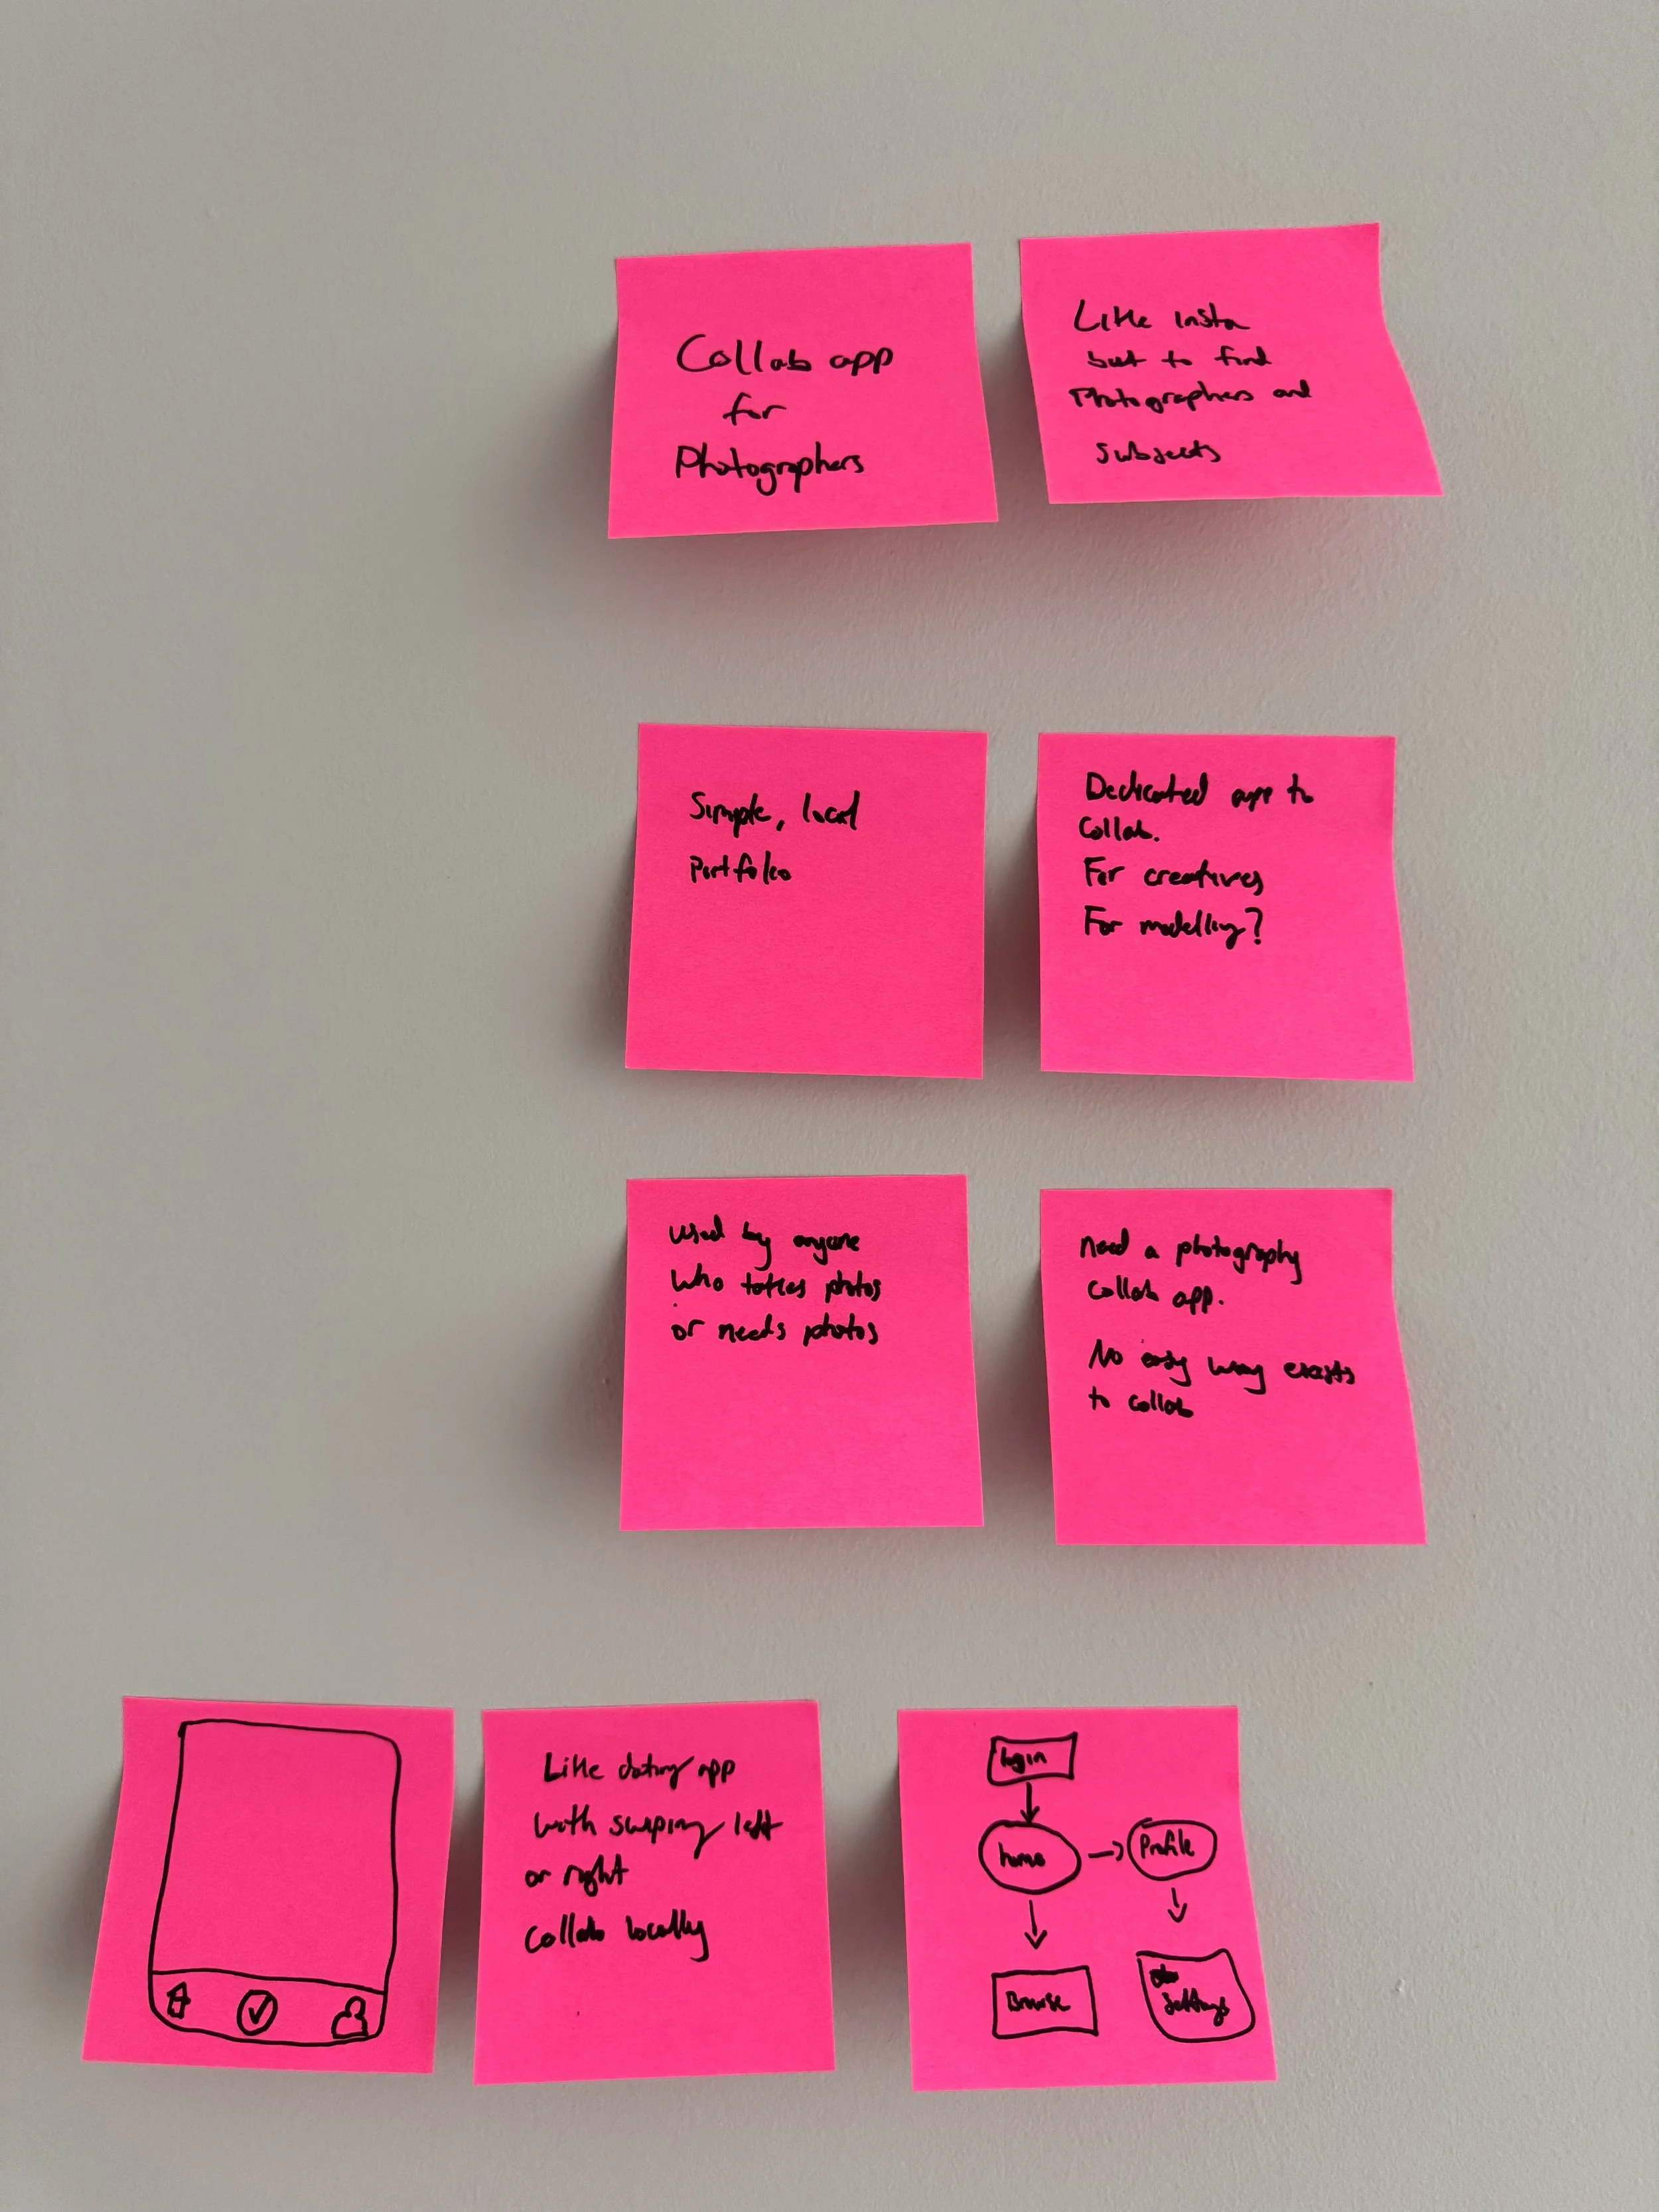 Collab app
for
Photographers
Like insta
but to find
Photographers and
subjects
Simple, local
Portfolio
Dedicated app to
collab.
For creatives
For modelling?
used by anyone
who takes photos
or needs photos
need a photography
collab app.
No easy way exists
to collab
Like dating app
with swiping left
or right
collab locally
login
home
Profile
Browse
settings